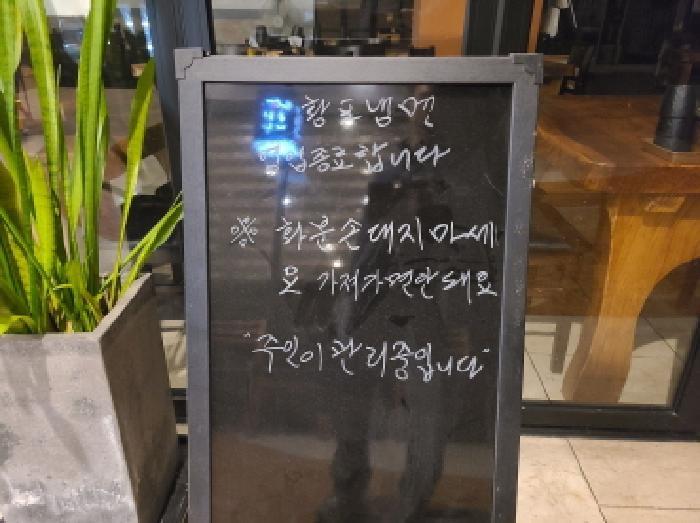 황포냉면
영업종료합니다
※ 화분손대지마세
요 가져가면안돼요
"주인이관리중입니다"